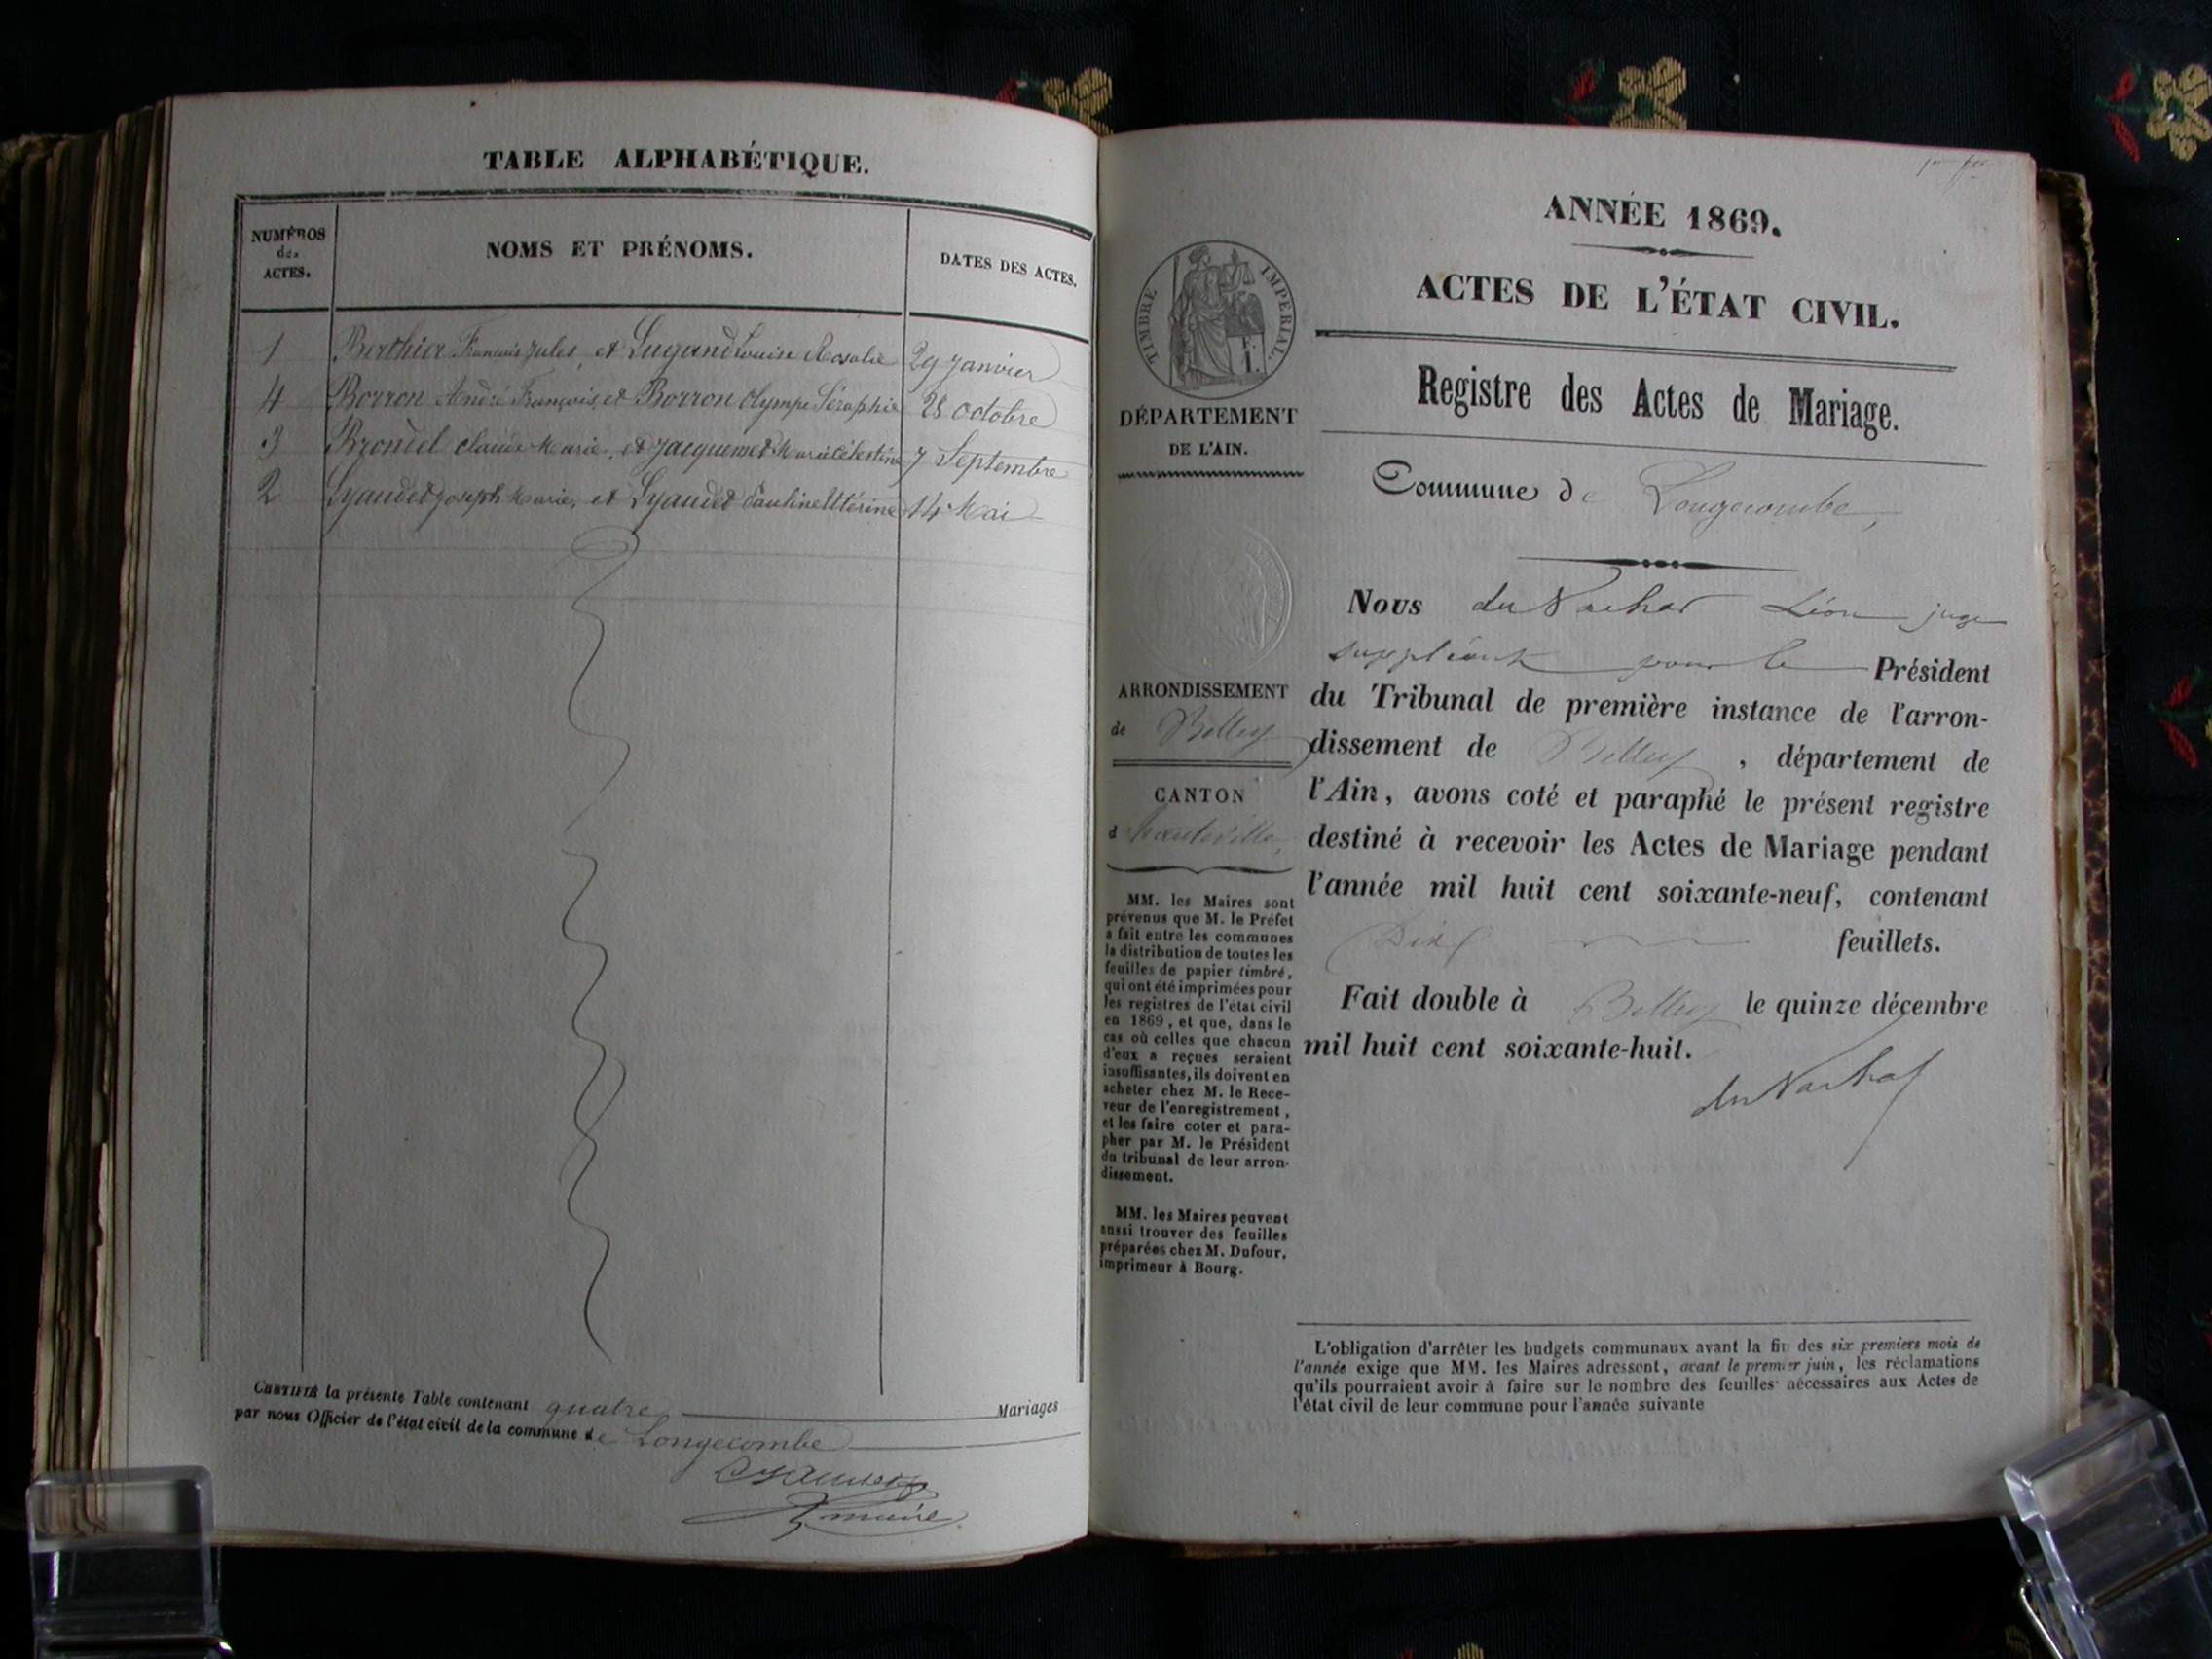 TABLE ALPHABÉTIQUE.
NUMÉROS
des
ACTES.
NOMS ET PRÉNOMS.
DATES DES ACTES.
1 Berthier François Jules, et Lugand Louise Rosalie 29 Janvier
4 Borron André François, et Borron Olympe Séraphie 28 Octobre
3 Brondel Claude Marie, et Jacquemet Marie Célestine 7 Septembre
2 Lyaudet Joseph Marie, et Lyaudet Pauline 14 Mai
CERTIFIÉ la présente Table contenant quatre Mariages
par nous Officier de l'état civil de la commune de Longecombe
Lyaudet
maire
ANNÉE 1869.
ACTES DE L'ÉTAT CIVIL.
Registre des Actes de Mariage.
TIMBRE IMPERIAL.
DÉPARTEMENT
DE L'AIN.
Commune de Longecombe,
Nous Léon juge
suppléant pour le Président
ARRONDISSEMENT
de Belley
CANTON
d'hauteville,
du Tribunal de première instance de l'arron-
dissement de Belley, département de
l'Ain, avons coté et paraphé le présent registre
destiné à recevoir les Actes de Mariage pendant
l'année mil huit cent soixante-neuf, contenant
Dix feuillets.
Fait double à Belley le quinze décembre
mil huit cent soixante-huit.
MM. les Maires sont
prévenus que M. le Préfet
a fait entre les communes
la distribution de toutes les
feuilles de papier timbré,
qui ont été imprimées pour
les registres de l'état civil
en 1869, et que, dans le
cas où celles que chacun
d'eux a reçues seraient
insuffisantes, ils doivent en
acheter chez M. le Rece-
veur de l'enregistrement,
et les faire coter et para-
pher par M. le Président
du tribunal de leur arron-
dissement.
MM. les Maires peuvent
aussi trouver des feuilles
préparées chez M. Dufour,
imprimeur à Bourg.
L'obligation d'arrêter les budgets communaux avant la fin des six premiers mois de
l'année exige que MM. les Maires adressent, avant le premier juin, les réclamations
qu'ils pourraient avoir à faire sur le nombre des feuilles nécessaires aux Actes de
l'état civil de leur commune pour l'année suivante